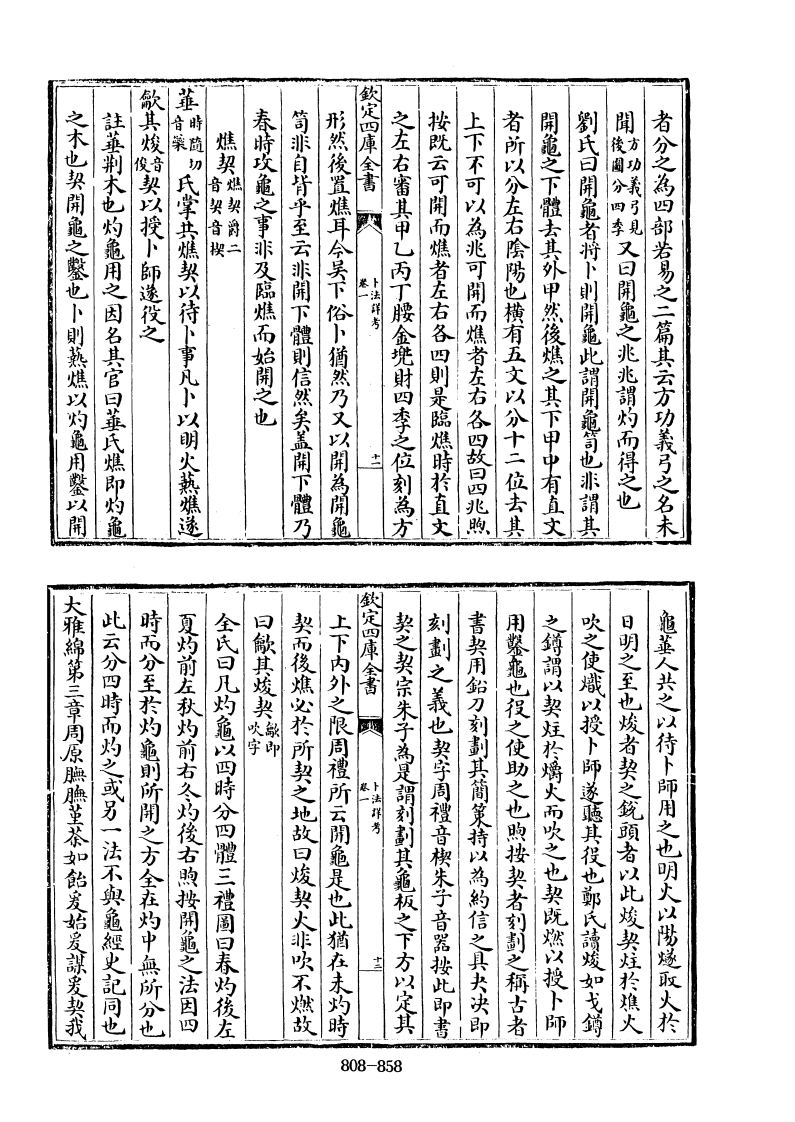 者分之為四部若易之二篇其云方功義弓之名未
聞方功義弓見後圖分四季又曰開龜之兆兆謂灼而得之也
劉氏曰開龜者將卜則開龜此謂開龜笥也非謂其
開龜之下體去其外甲然後燋之其下甲中有直文
者所以分左右陰陽也橫有五文以分十二位去其
上下不可以為兆可開而燋者左右各四故曰四兆煦
按既云可開而燋者左右各四則是臨燋時於直文
之左右審其甲乙丙丁腰金兠財四季之位刻為方
欽定四庫全書
卜法詳考
卷一
十一
形然後置燋耳今吴下俗卜猶然乃又以開為開龜
笥非自背乎至云非開下體則信然矣盖開下體乃
春時攻龜之事非及臨燋而始開之也
燋契燋契爵二音契音楔
菙時隨切音棰氏掌共燋契以待卜事凡卜以明火爇燋遂
龡其焌音俊契以授卜師遂役之
註菙荆木也灼龜用之因名其官曰菙氏燋即灼龜
之木也契開龜之鑿也卜則爇燋以灼龜用鑿以開
龜菙人共之以待卜師用之也明火以陽燧取火於
日明之至也焌者契之銳頭者以此焌契炷於燋火
吹之使熾以授卜師遂聽其役也鄭氏讀焌如戈鐏
之鐏謂以契炷於爝火而吹之也契既燃以授卜師
用鑿龜也役之使助之也煦按契者刻劃之稱古者
書契用鉛刀刻劃其簡策持以為約信之具夬決即
刻劃之義也契字周禮音楔朱子音器按此即書
契之契宗朱子為是謂刻劃其龜板之下方以定其
欽定四庫全書
卜法詳考
卷一
十二
上下内外之限周禮所云開龜是也此猶在未灼時
契而後燋必於所契之地故曰焌契火非吹不燃故
曰龡其焌契龡即吹字
全氏曰凡灼龜以四時分四體三禮圖曰春灼後左
夏灼前左秋灼前右冬灼後右煦按開龜之法因四
時而分至於灼龜則所開之方全在灼中無所分也
此云分四時而灼之或另一法不與龜經史記同也
大雅綿第三章周原膴膴堇荼如飴爰始爰謀爰契我
808-858